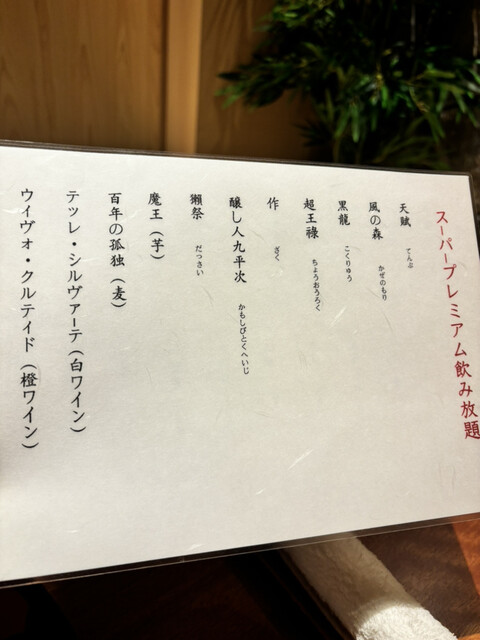 スーパープレミアム飲み放題
天賦 てんぶ
風の森 かぜのもり
黒龍 こくりゅう
超王祿 ちょうおうろく
作 ざく
醸し人九平次 かもしびとくへいじ
獺祭 だっさい
魔王（芋）
百年の孤独（麦）
テッレ・シルヴァーテ（白ワイン）
ウィヴォ・クルテイド（橙ワイン）